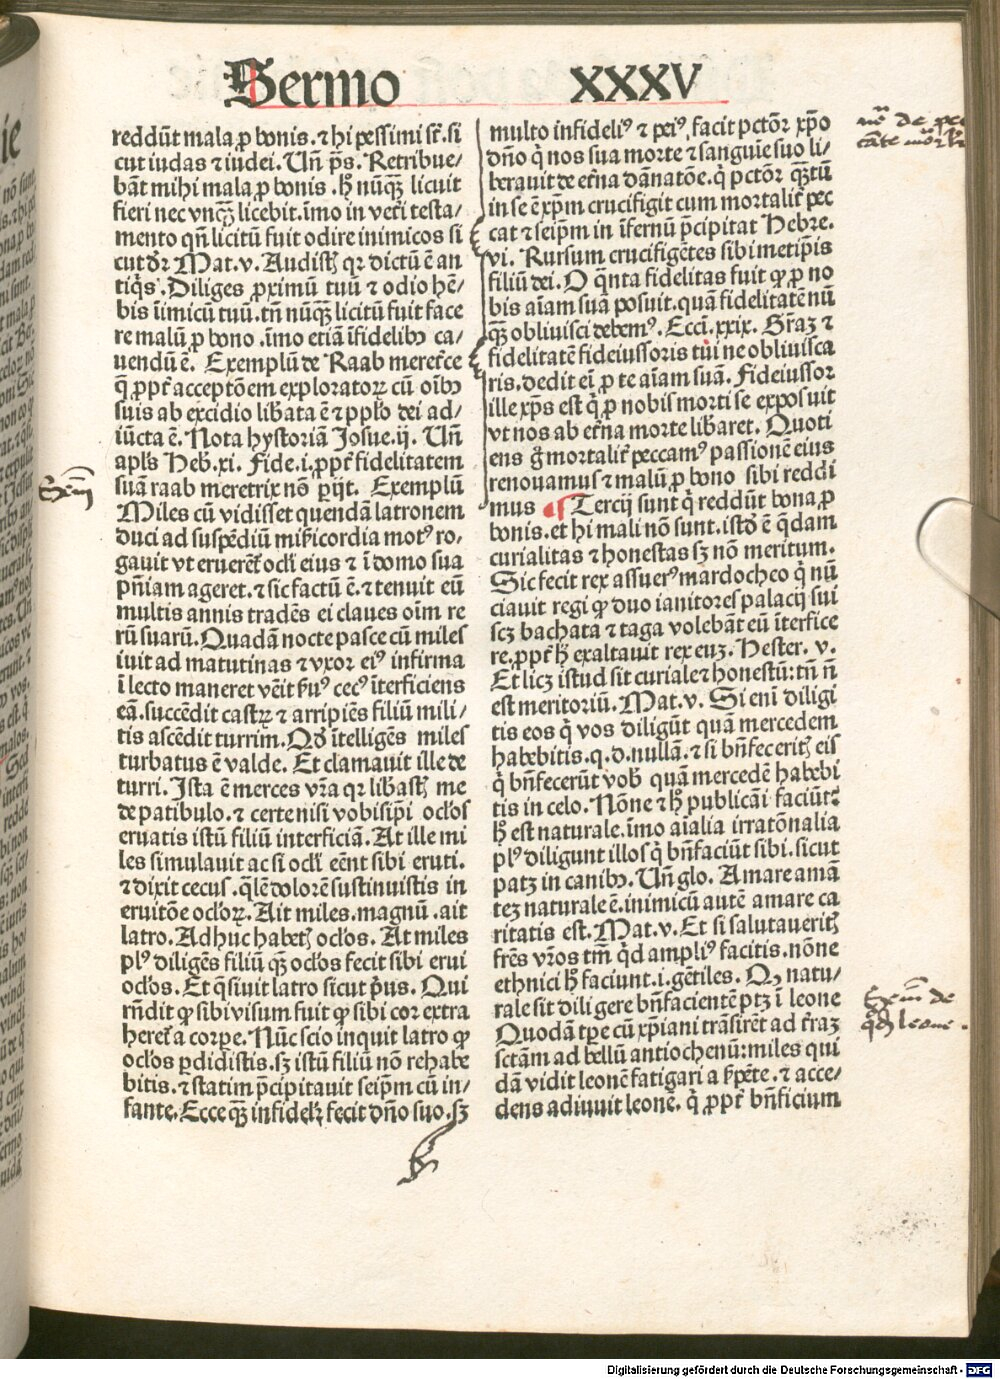 Sermo XXXV
reddūt mala ꝓ bonis. ⁊ hi pessimi sūt. si
cut iudas ⁊ iudei. Uñ ps̄. Retribue-
bāt mihi mala ꝓ bonis. h̄ nūqꝫ licuit
fieri nec vnqꝫ licebit. īmo in veťi testa/
mento qñ licitū fuit odire inimicos si
cut dr̄ Mat. v. Audistꝭ qꝛ dictū ē an
tiq̄s. Diliges ꝓximū tuū ⁊ odio hē-
bis īimicū tuū. tñ nūqꝫ licitū fuit face
re malū ꝓ bono. īmo etiā īfidelibꝰ ca/
uendū ē. Exemplū de Raab meret'ce
q̄ ꝓpt̄ acceptōem exploratoꝝ cū oībꝰ
suis ab excidio lib̄ata ē ⁊ ppło dei ad/
iūcta ē. Nota hystoriā Josue. ij. Uñ
apl's Heb. xi. Fide .i. ꝓpt̄ fidelitatem
suā raab meretrix nō ꝑijt. Exemplū
Miles cū vidisset quendā latronem
duci ad suspēdiū mīsericordia motꝰ ro-
gauit vt eruerēt ocl'i eius ⁊ ī domo sua
pñiam ageret. ⁊ sic factū ē. ⁊ tenuit eū
multis annis tradēs ei claues oīm re
rū suarū. Quadā nocte pasce cū miles
iuit ad matutinas ⁊ vxor eiꝰ infirma
ī lecto maneret vēit ꝓuꝰ cecꝰ īterficiens
eā. succēdit castꝝ ⁊ arripiēs filiū mili/
tis ascēdit turrim. Qd̄ ītelligēs miles
turbatus ē valde. Et clamauit ille de
turri. Ista ē merces vr̄a qꝛ lib̄astꝭ me
de patibulo. ⁊ certe nisi vobisip̄i ocl'os
eruatis istū filiū interficiā. At ille mi
les simulauit ac si ocl'i eēnt sibi eruti.
⁊ dixit cecus. q̄lē dolorē sustinuistis in
eruitōe ocl'oꝝ. Ait miles. magnū. ait
latro. Adhuc habetꝭ ocl'os. At miles
plꝰ diligēs filiū qꝫ ocl'os fecit sibi erui
ocl'os. Et q̄siuit latro sicut pꝰus. Qui
rñdit ꝙ sibi visum fuit ꝙ sibi cor extra
heret' a corpe. Nūc scio inquit latro ꝙ
ocl'os ꝑdidistis. sꝫ istū filiū nō rehabe
bitis. ⁊ statim p̄cipitauit seip̄m cū in/
fante. Ecce qꝫ infidel'r fecit dño suo. sꝫ
multo infideliꝰ ⁊ peiꝰ facit pctōr xp̄o
dño q̄ nos sua morte ⁊ sanguīe suo li/
berauit de et̄na dānatōe. q̄ pctōr qꝫtū
in se ē xp̄m crucifigit cum mortalit' pec
cat ⁊ seip̄m in īfernū p̄cipitat Hebre.
vi. Rursum crucifigētes sibimetip̄is
filiū dei. O q̄nta fidelitas fuit ꝙ ꝓ no
bis aīam suā posuit. quā fidelitatē nū
qꝫ obliuisci debemꝰ. Ecci. xxix. Gr̄az ⁊
fidelitatē fideiussoris tui ne obliuisca
ris. dedit ei ꝓ te aīam suā. Fideiussor
ille xp̄s est q̄ ꝓ nobis morti se exposuit
vt nos ab et̄na morte lib̄aret. Quoti
ens ḡ mortalit' peccamꝰ passionē eius
renouamus ⁊ malū ꝓ bono sibi reddi
mus ¶ Tercij sunt q̄ reddūt bona ꝓ
bonis. et hi mali nō sunt. istō ē q̄dam
curialitas ⁊ honestas sꝫ nō meritum.
Sic fecit rex assuerꝰ mardocheo q̄ nū
ciauit regi ꝙ duo ianitores palacij sui
scꝫ bachata ⁊ taga volebāt eū īterfice
re. ꝓpt̄ h̄ exaltauit rex euꝫ. Hester. v.
Et licꝫ istud sit curiale ⁊ honestū: tñ ñ
est meritoriū. Mat. v. Si enī diligi
tis eos q̄ vos diligūt quā mercedem
habebitis. q. d. nullā. ⁊ si bñfeceritꝭ eis
q̄ bñfecerūt vob̄ quā mercedē habebi
tis in celo. Nōne ⁊ h̄ publicāi faciūt:
h̄ est naturale. īmo aīalia irratōnalia
plꝰ diligunt illos q̄ bñfaciūt sibi. sicut
patꝫ in canibꝰ. Uñ glo. Amare amā
teꝫ naturale ē. inimicū autē amare ca
ritatis est. Mat. v. Et si salutaueritꝭ
fr̄es vr̄os tm̄ q̇d ampliꝰ facitis. nōne
ethnici h̄ faciunt .i. gētiles. Q, natu/
rale sit diligere bñfacientē ptꝫ ī leone
Quodā tpe cū xp̄iani trāsirēt ad t̄raꝫ
sctām ad bellū antiochenū: miles qui
dā vidit leonē fatigari a s̄pēte. ⁊ acce/
dens adiuuit leonē. q̄ ꝓpt̄ bñficium
Exm de
leone.
Digitalisierung gefördert durch die Deutsche Forschungsgemeinschaft - DFG